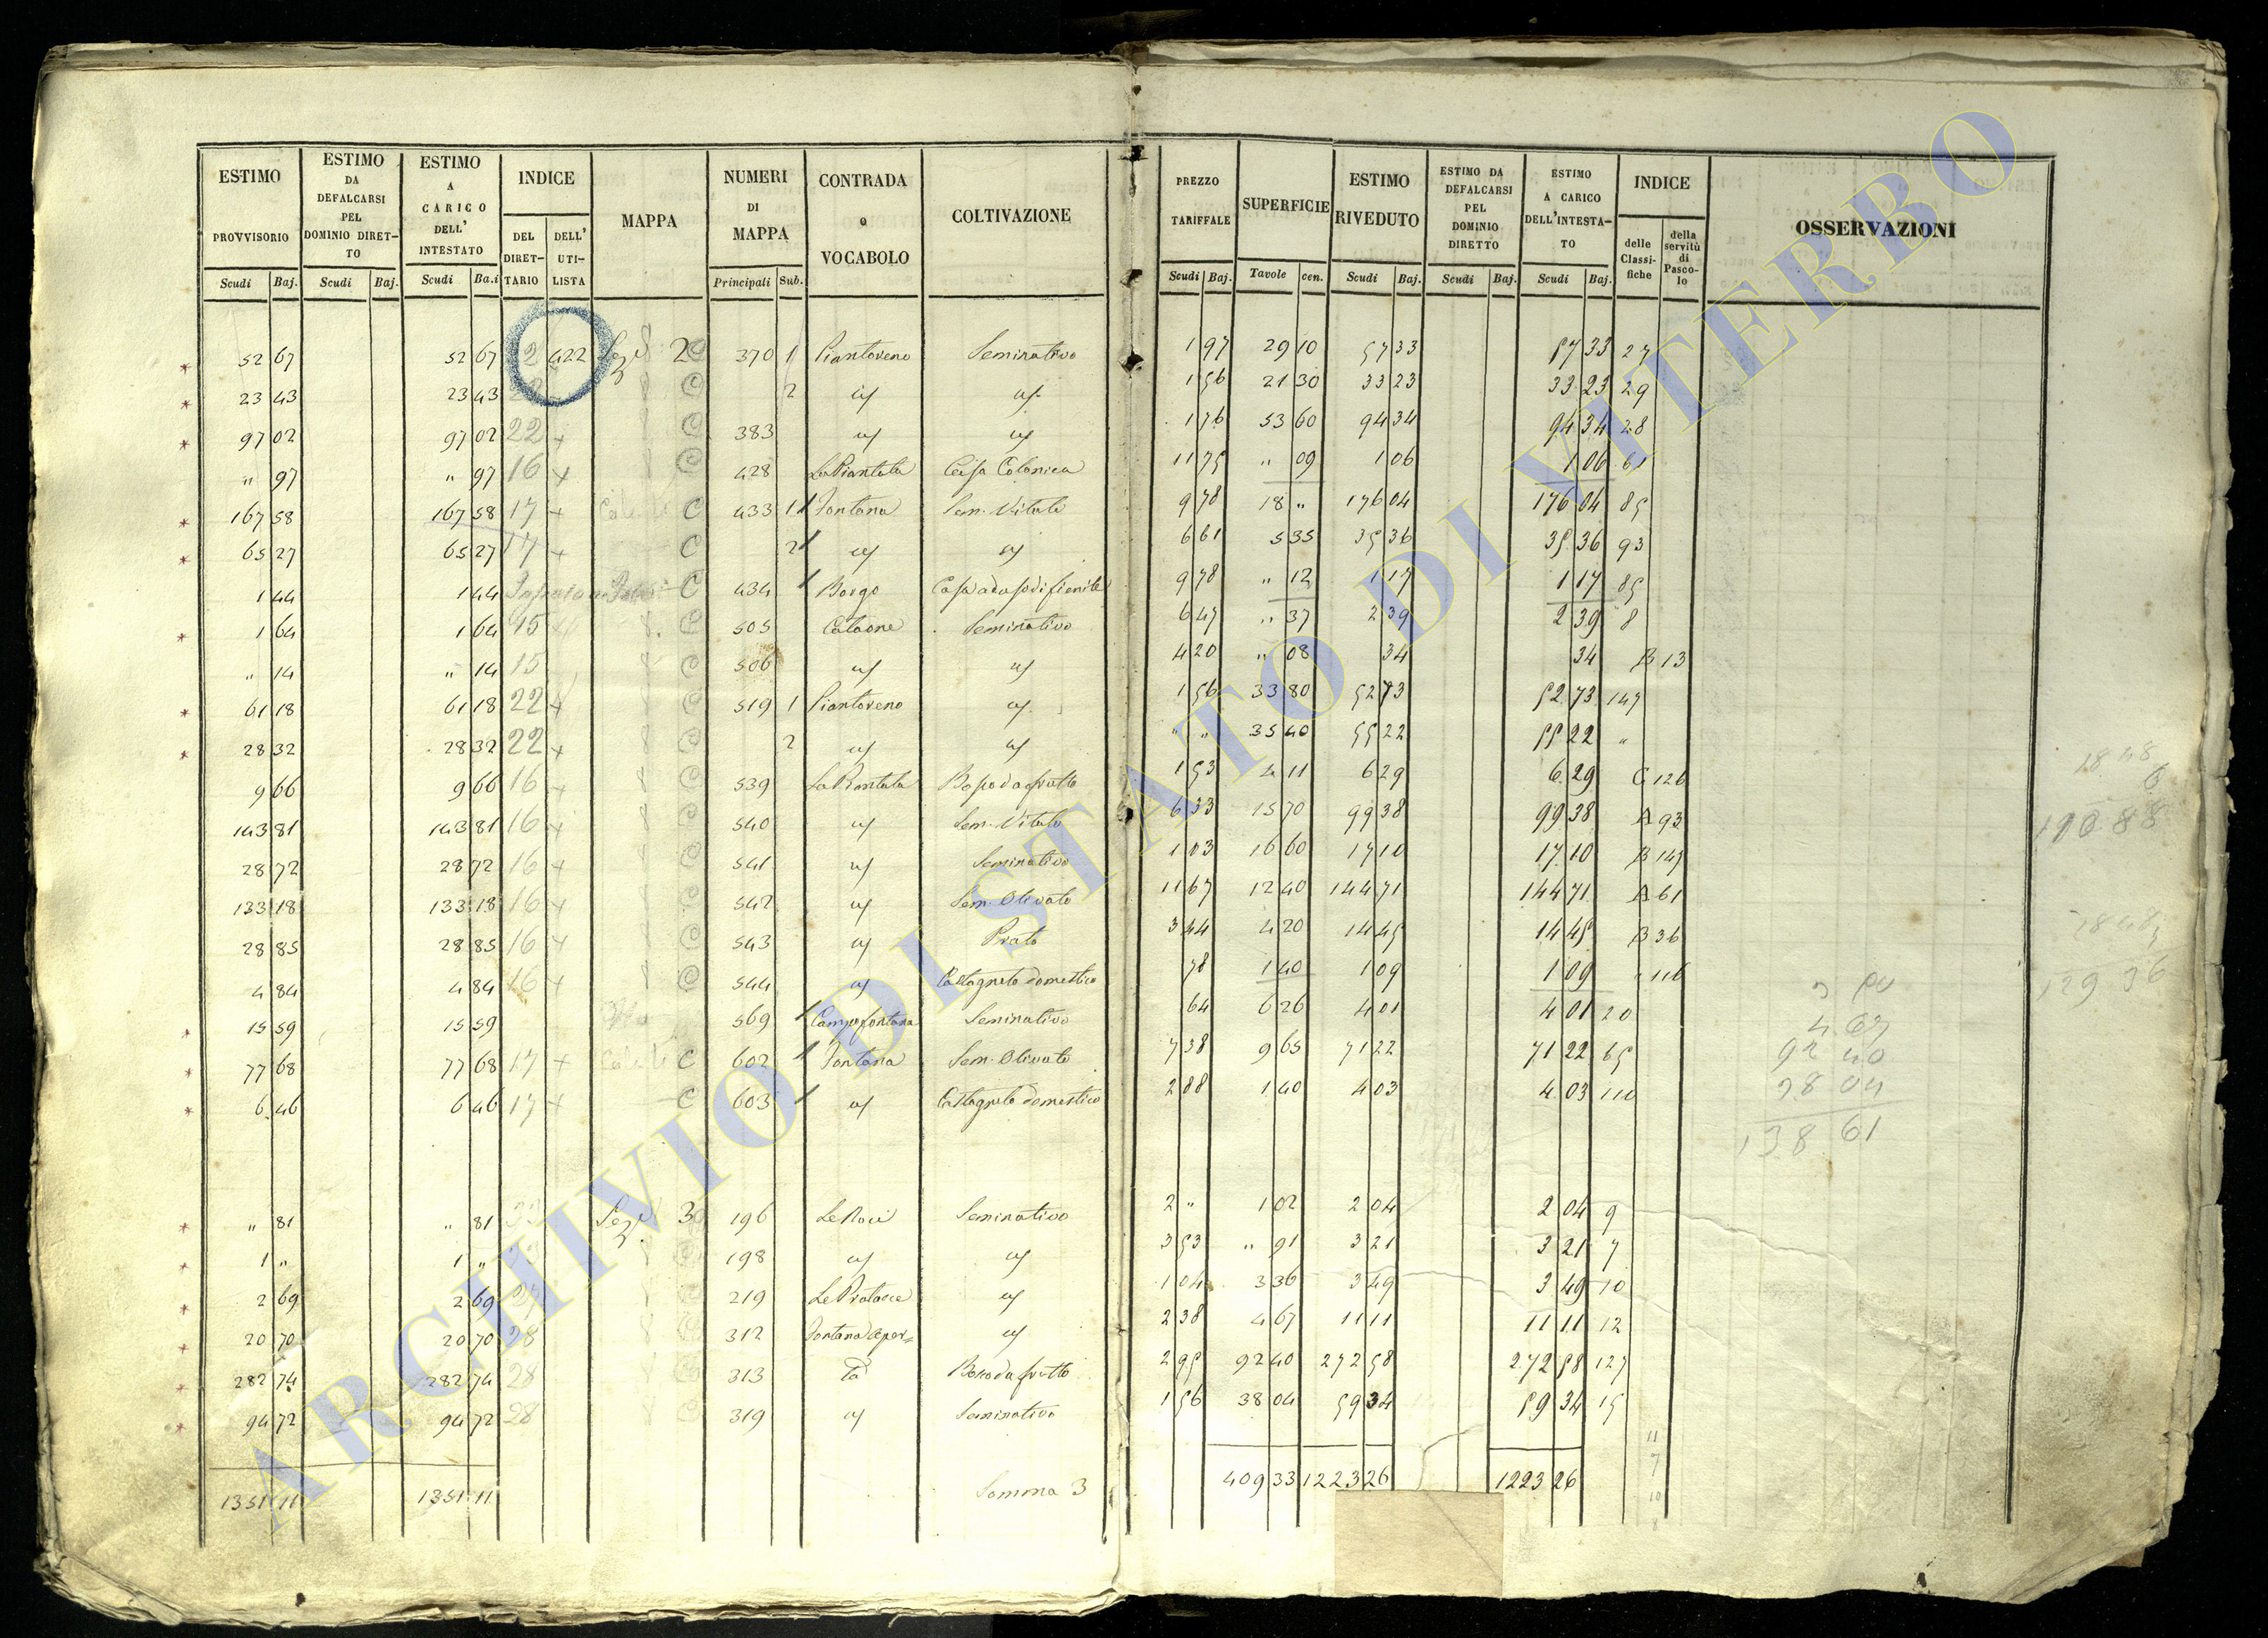 ESTIMO PROVVISORIO Scudi Baj.
ESTIMO DA DEFALCARSI PEL DOMINIO DIRET-TO Scudi Baj.
ESTIMO A CARICO DELL' INTESTATO Scudi Ba.i
INDICE DEL DIRET-TARIO DELL' UTI-LISTA
MAPPA
NUMERI DI MAPPA Principali Sub.
CONTRADA o VOCABOLO
COLTIVAZIONE
PREZZO TARIFFALE Scudi Baj.
SUPERFICIE Tavole cen.
ESTIMO RIVEDUTO Scudi Baj.
ESTIMO DA DEFALCARSI PEL DOMINIO DIRETTO Scudi Baj.
ESTIMO A CARICO DELL'INTESTA-TO Scudi Baj.
INDICE delle Classi-fiche della servitù di Pasco-lo
OSSERVAZIONI
52 67 52 67 2 422 Sez.e 2 370 1 Piantoreno Seminativo 1 97 29 10 57 33 57 33 27
23 43 23 43 22 8 C 2 id id 1 56 21 30 33 23 33 23 29
97 02 97 02 22 + 8 C 383 id id 1 76 53 60 94 34 94 34 28
" 97 " 97 16 + 8 C 428 La Piantata Casa Colonica 11 75 " 09 1 06 1 06 61
167 58 167 58 17 + C 433 1 Fontana Sem. Vitato 9 78 18 " 176 04 176 04 85
65 27 65 27 17 + C 2 id id 6 61 5 35 35 36 35 36 93
1 44 1 44 C 434 Borgo 9 78 " 12 1 17 1 17 85
1 64 1 64 15 8 C 505 Seminativo 6 47 " 37 2 39 2 39 8
" 14 " 14 15 8 C 506 id id 4 20 " 08 34 34 B 13
61 18 61 18 22 + 8 C 519 1 Piantoreno id 1 56 33 80 52 73 52 73 147
28 32 28 32 22 + 8 C 2 id id " " 35 40 55 22 55 22 "
9 66 9 66 16 + 8 C 539 La Piantata Bosco da frutto 1 53 4 11 6 29 6 29 C 126
143 81 143 81 16 + 8 C 540 id Sem. Vitato 6 33 15 70 99 38 99 38 A 93
28 72 28 72 16 + 8 C 541 id Seminativo 1 03 16 60 17 10 17 10 B 147
133 18 133 18 16 + 8 C 542 id Sem. Olivato 11 67 12 40 144 71 144 71 A 61
28 85 28 85 16 + 8 C 543 id Prato 3 44 4 20 14 45 14 45 B 36
4 84 4 84 16 + 8 C 544 id Castagneto domestico 78 1 40 1 09 1 09 " 116
15 59 15 59 569 Campofontana Seminativo 64 6 26 4 01 4 01 20
77 68 77 68 17 + C 602 Fontana Sem. Olivato 7 38 9 65 71 22 71 22 65
6 46 6 46 17 + C 603 id Castagneto domestico 2 88 1 40 4 03 4 03 110
" 81 " 81 Sez.e 3 196 Le Noci Seminativo 2 " 1 02 2 04 2 04 9
1 " 1 " 8 198 id id 3 53 " 91 3 21 3 21 7
2 69 2 69 219 Le Pratacce id 1 04 3 36 3 49 3 49 10
20 70 20 70 28 8 312 Fontana aper= id 2 38 4 67 11 11 11 11 12
282 74 282 74 28 8 313 ta Bosco da frutto 2 95 92 40 272 58 272 58 127
94 72 94 72 28 8 319 id Seminativo 1 56 38 04 59 34 59 34 15
1351 11 1351 11 Somma 3 409 33 1223 26 1223 26
11
7
10
4 67
92 40
38 04
138 61
18 48
6
110 88
129 36
ARCHIVIO DI STATO DI VITERBO